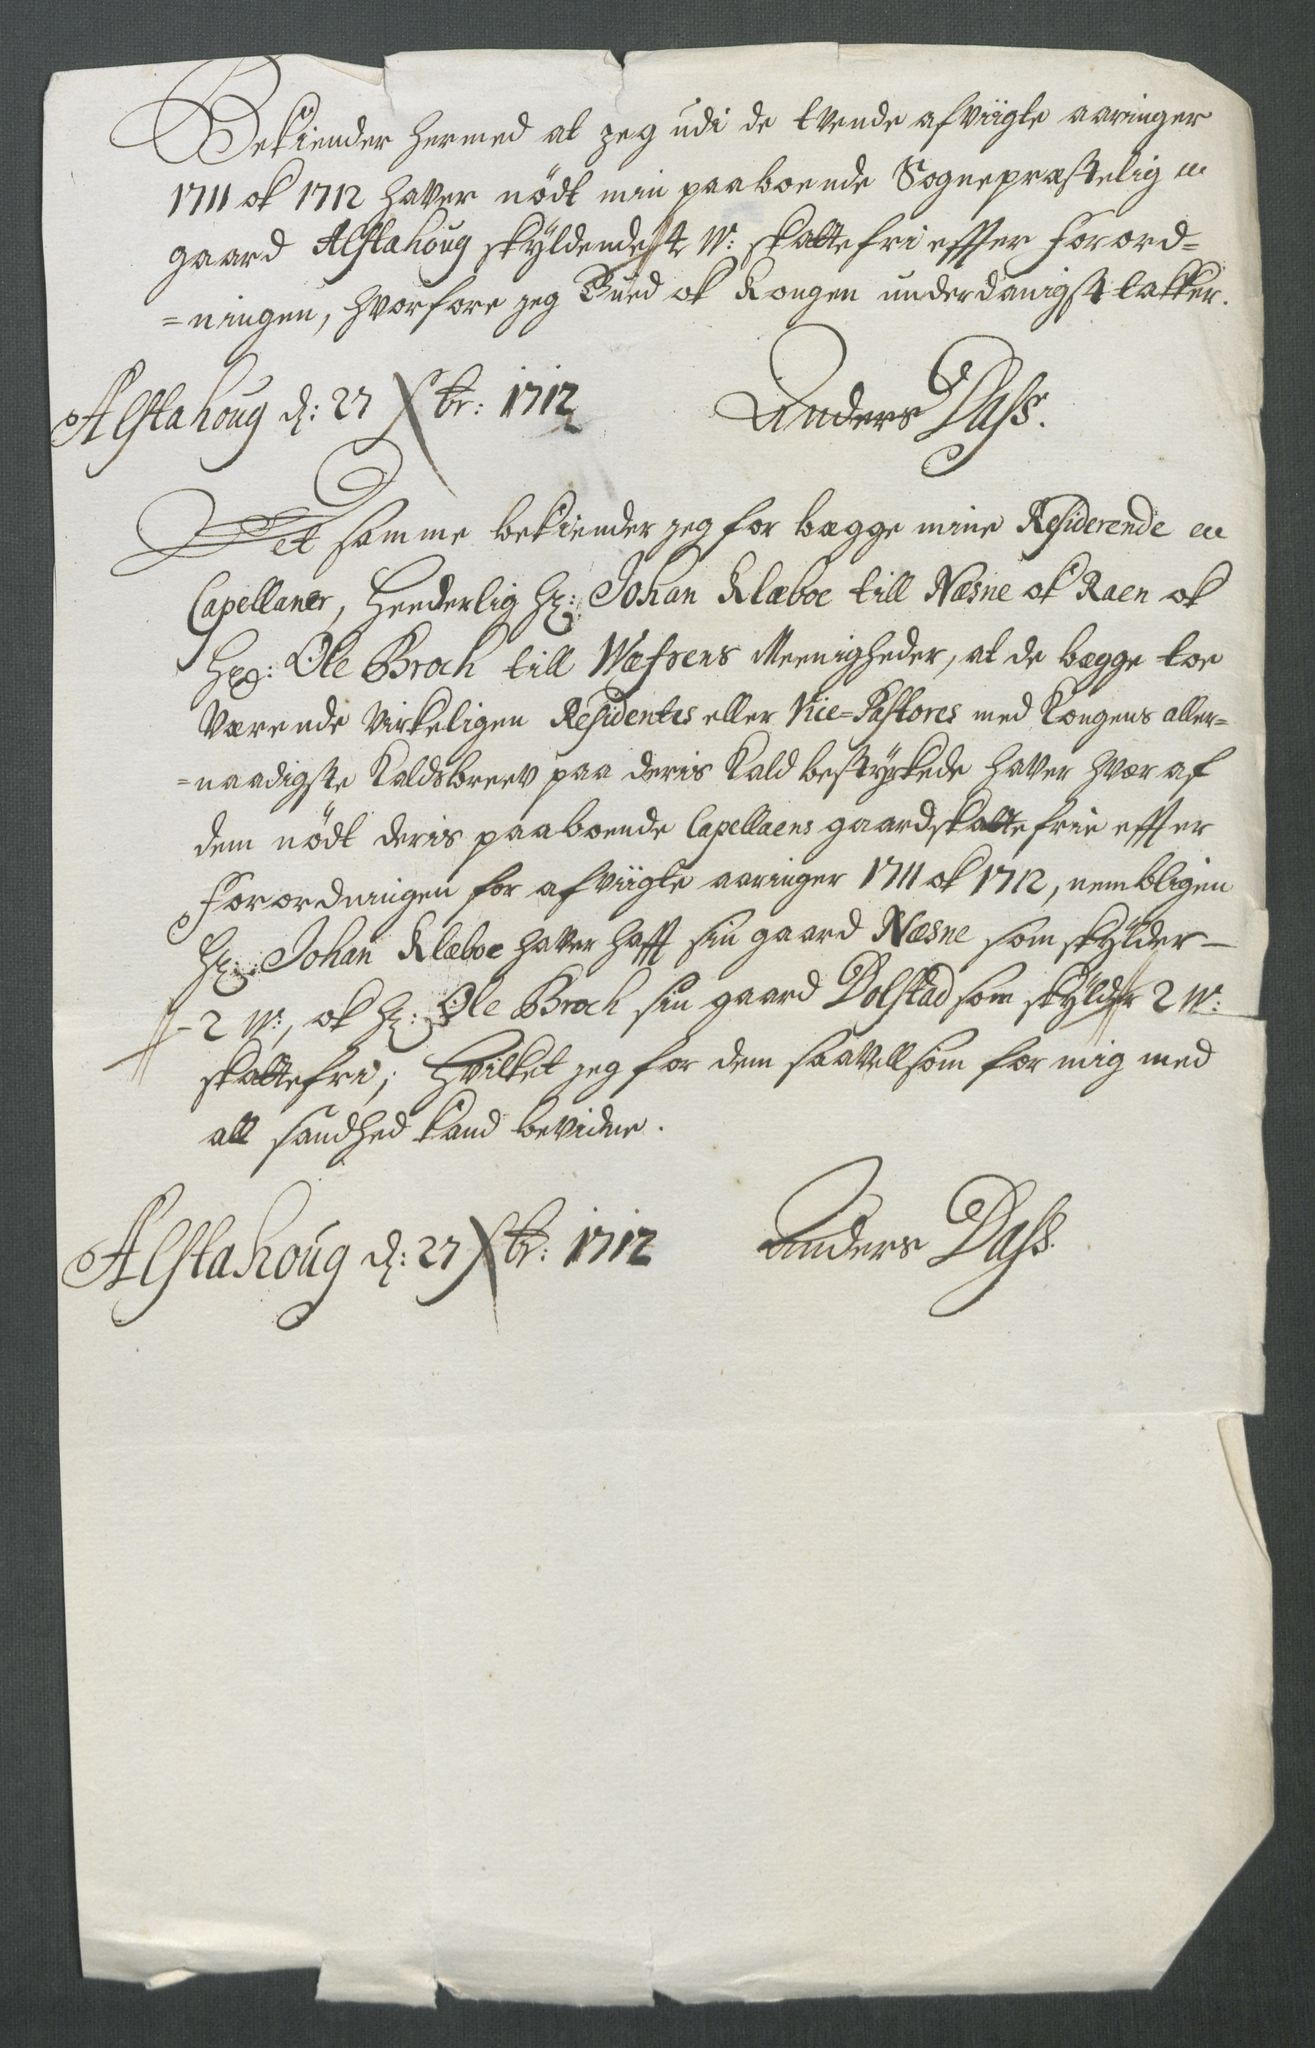 Bekiender hermed at jeg udi de tvende afviigte aaringer
1711 ok 1712 haver nødt min paaboende Sognepræstelig
gaard Alstahoug skyldendest W: skattefri effter Forord=
=ningen, hvorfore jeg Gued ok Kongen underdanigst takker.
Alstahoug d: 27 Xbr: 1712 Anders Dass.
Det samme bekiender jeg for bægge mine Residerende
Capellaner, Heederlig Hr: Johan Klæboe till Næsne ok Raen ok
Hr: Ole Broch till Wæfsens Meenigheder, at de bægge toe
værende virkeligen Residentes eller Vice=Pastores med Kongens aller=
=naadigste Kaldsbreev paa deris Kald bestyrkede haver hver af
dem nødt deris paaboende Capellaens gaard skattefrie effter
Forordningen for afviigte aaringer 1711 ok 1712, nembligen
Hr: Johan Klæboe haver hafft sin gaard Næsne som skylder -
- 2 W:, ok Hr: Ole Broch sin gaard Dolstad som skylder 2 W:
skattefri; Hvilket jeg for dem saavellsom for mig med
all sandhed kand bevidne.
Alstahoug d: 27 Xbr: 1712 Anders Dass.